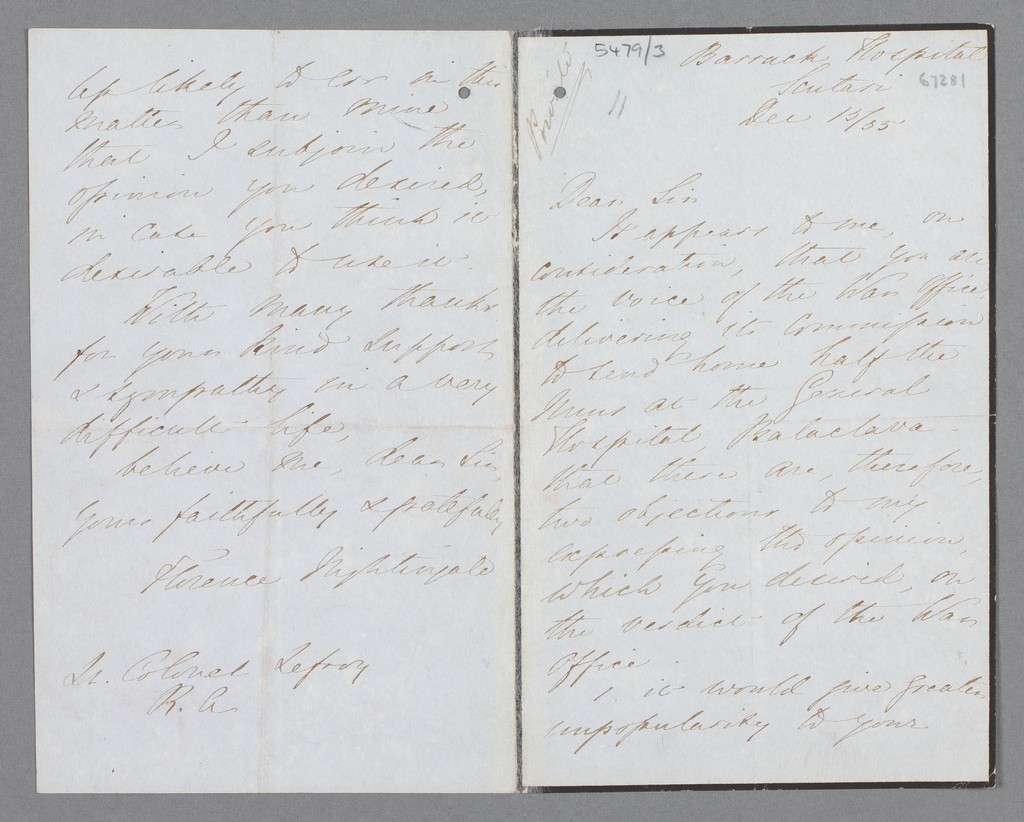 5479/3
67281
Private
11
Barrack Hospital
Scutari
Dec 13/55
Dear Sir
It appears to me, on
consideration, that you are
the voice of the War Office
delivering its Commission
to send home half the
Nuns at the General
Hospital, Balaclava -
that there are, therefore,
two objections to my
expressing the opinion,
which you desired, on
the verdict of the War
Office.
1, it would give greater
unpopularity to your
likely to err in this
matter than mine
that I subjoin the
opinion you desired,
in case you think it
desirable to use it.
With many thanks
for your kind support
& sympathy in a very
difficult life,
believe me, dear Sir,
yours faithfully & gratefully
Florence Nightingale
Lt. Colonel Lefroy
R.A.